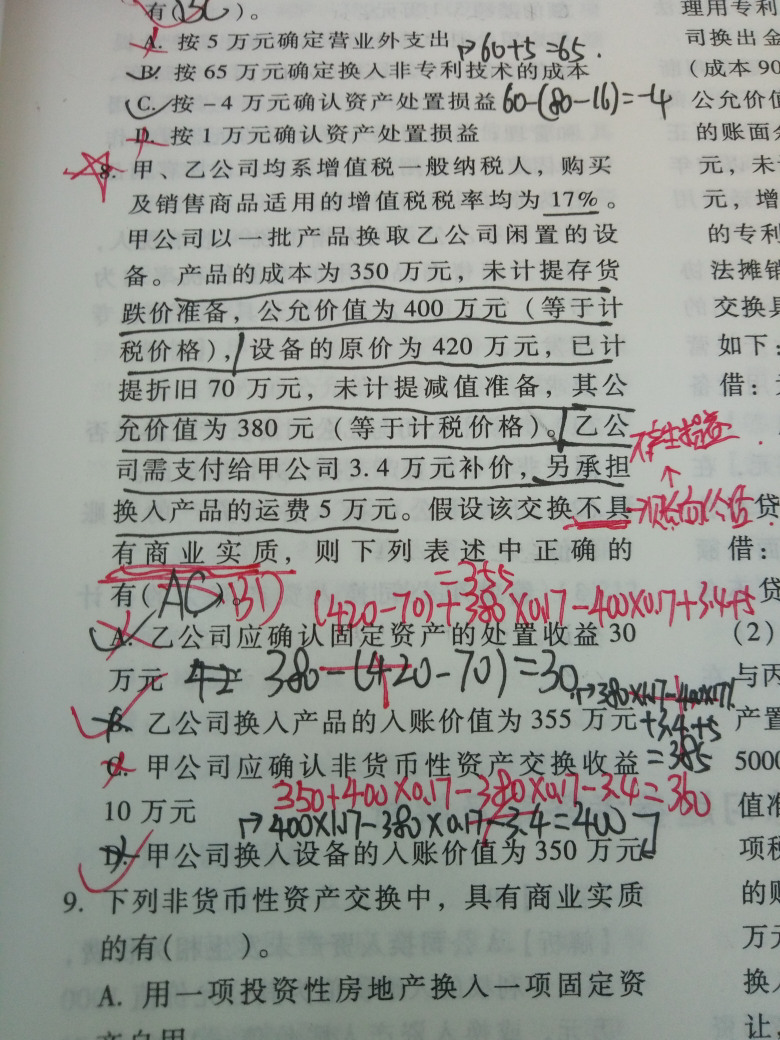 有(BC)。
A. 按 5 万元确定营业外支出 60+5=65.
B. 按 65 万元确定换入非专利技术的成本
C. 按 -4 万元确认资产处置损益 60-(80-16)=-4
D. 按 1 万元确认资产处置损益
8. 甲、乙公司均系增值税一般纳税人，购买
及销售商品适用的增值税税率均为 17%。
甲公司以一批产品换取乙公司闲置的设
备。产品的成本为 350 万元，未计提存货
跌价准备，公允价值为 400 万元（等于计
税价格），设备的原价为 420 万元，已计
提折旧 70 万元，未计提减值准备，其公
允价值为 380 元（等于计税价格）。乙公
司需支付给甲公司 3.4 万元补价，另承担
换入产品的运费 5 万元。假设该交换不具
有商业实质，则下列表述中正确的
=355
有(AC)。(BD) (420-70)+380×0.17-400×0.17+3.4+5
A. 乙公司应确认固定资产的处置收益 30
万元 380-(420-70)=30
380×1.17-400×17%
B. 乙公司换入产品的入账价值为 355 万元 +3.4+5
=385
C. 甲公司应确认非货币性资产交换收益
350+400×0.17-380×0.17-3.4=350
10 万元
400×1.17-380×0.17-3.4=400
D. 甲公司换入设备的入账价值为 350 万元
9. 下列非货币性资产交换中，具有商业实质
的有( )。
A. 用一项投资性房地产换入一项固定资
理用专利
司换出金
(成本 90
公允价值
的账面余
元，未计
元，增
的专利
法摊销
交换具
如下：
借：
贷
借：
贷
(2)
与丙
产置
5000
值准
项税
的账
万元
换入
让，